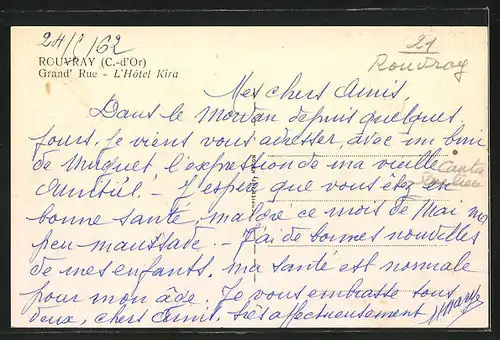 24/5/62
21
Rouvray
ROUVRAY (C.-d'Or)
Grand' Rue - L'Hôtel Kira
Mes chers Amis,
Dans le Morvan depuis quelques
jours, je viens vous adresser, avec un brin
de Muguet, l'expression de ma vieille
Amitié. - J'espère que vous êtes en
bonne santé, malgré ce mois de Mai un
peu maussade. - J'ai de bonnes nouvelles
de mes enfants, ma santé est normale
pour mon âge. Je vous embrasse tous
deux, chers Amis, très affectueusement